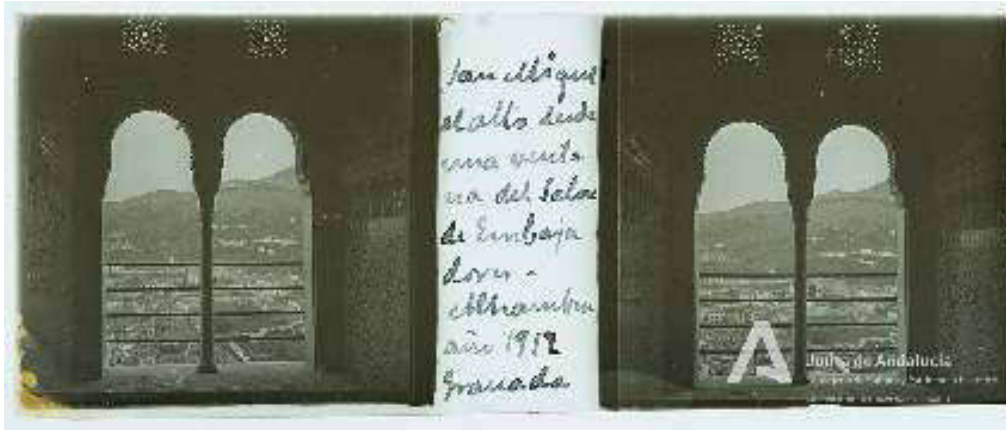 San Miguel
el alto desde
una venta
na del Salon
de Embaja
dores -
Alhambra
año 1912
Granada
A
Junta de Andalucía